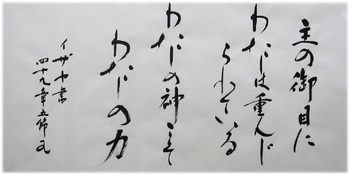 主の御目に
わたしは重んじ
られている
わたしの神こそ
わたしの力
イザヤ書
四十九章五節